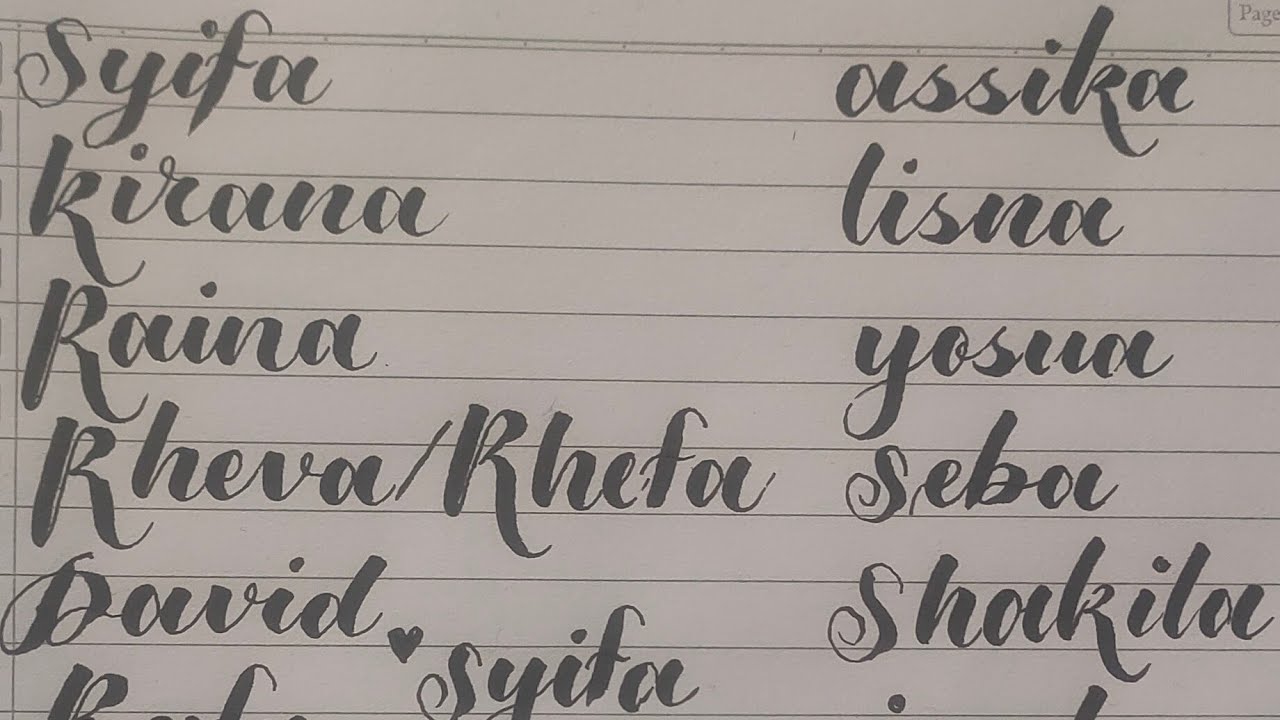 Page
Syifa
assika
kirana
lisna
Raina
yosua
Rheva/Rhefa
seba
David
Shakila
♥ Syifa